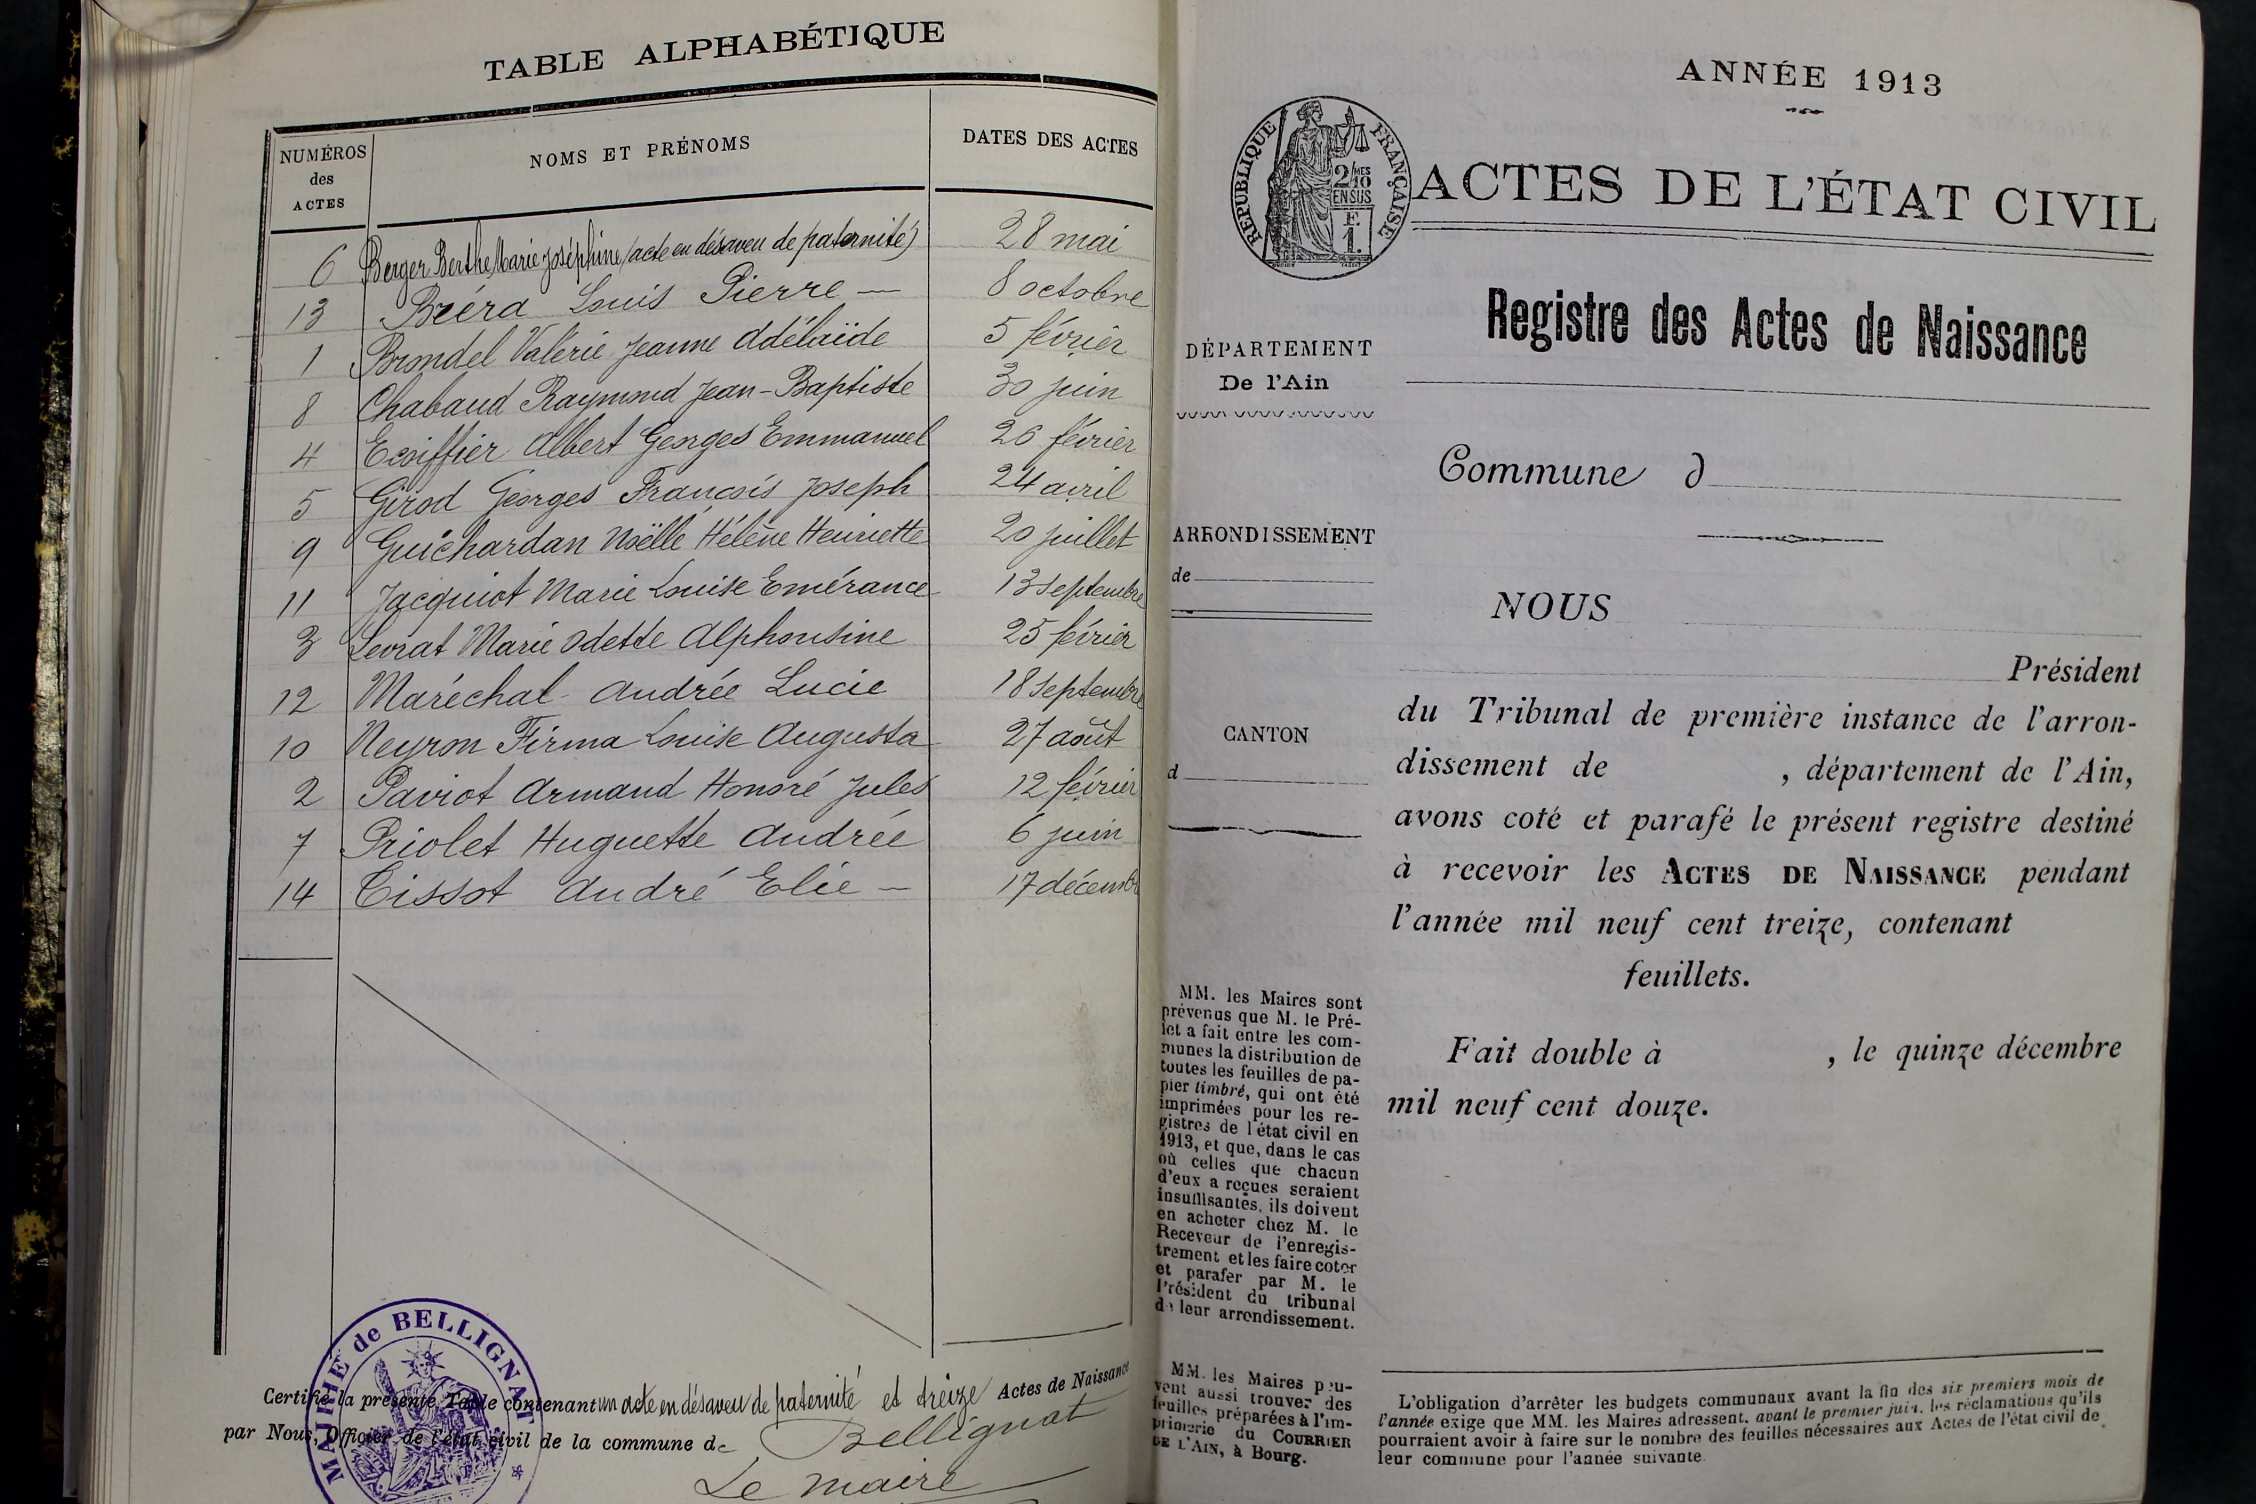 TABLE ALPHABÉTIQUE
NUMÉROS des ACTES NOMS ET PRÉNOMS DATES DES ACTES
6 Berger Berthe Marie Joséphine (acte en désaveu de paternité) 28 mai
13 Bréra Louis Pierre — 8 octobre
1 Brondel Valérie Jeanne Adélaïde 5 février
8 Chabaud Raymond Jean-Baptiste 30 juin
4 Ecoiffier Albert Georges Emmanuel 26 février
5 Girod Georges François Joseph 24 avril
9 Guichardan Noëlle Hélène Henriette 20 juillet
11 Jacquiot Marie Louise Emérance 13 septembre
3 Levrat Marie Odette Alphonsine 25 février
12 Maréchal Andrée Lucie 18 septembre
10 Neyron Firma Louise Augusta 27 août
2 Paviot Armand Honoré Jules 12 février
7 Priolet Huguette Andrée 6 juin
14 Tissot André Elie — 17 décemb
MAIRIE de BELLIGNAT
Certifie la présente Table contenant un acte en désaveu de paternité et treize Actes de Naissance
par Nous, Officier de l'état civil de la commune de Bellignat
Le maire
ANNÉE 1913
RÉPUBLIQUE FRANÇAISE
2/10 MES
EN SUS
F.
1.
ACTES DE L'ÉTAT CIVIL
Registre des Actes de Naissance
DÉPARTEMENT
De l'Ain
Commune d
ARRONDISSEMENT
de
NOUS
Président
du Tribunal de première instance de l'arron-
dissement de , département de l'Ain,
avons coté et parafé le présent registre destiné
à recevoir les ACTES DE NAISSANCE pendant
l'année mil neuf cent treize, contenant
feuillets.
Fait double à , le quinze décembre
mil neuf cent douze.
CANTON
d
MM. les Maires sont
prévenus que M. le Pré-
fet a fait entre les com-
munes la distribution de
toutes les feuilles de pa-
pier timbré, qui ont été
imprimées pour les re-
gistres de l'état civil en
1913, et que, dans le cas
où celles que chacun
d'eux a reçues seraient
insuffisantes, ils doivent
en acheter chez M. le
Receveur de l'enregis-
trement et les faire coter
et parafer par M. le
Président du tribunal
de leur arrondissement.
MM. les Maires peu-
vent aussi trouver des
feuilles préparées à l'im-
primerie du COURRIER
DE L'AIN, à Bourg.
L'obligation d'arrêter les budgets communaux avant la fin des six premiers mois de
l'année exige que MM. les Maires adressent, avant le premier juin, les réclamations qu'ils
pourraient avoir à faire sur le nombre des feuilles nécessaires aux Actes de l'état civil de
leur commune pour l'année suivante.